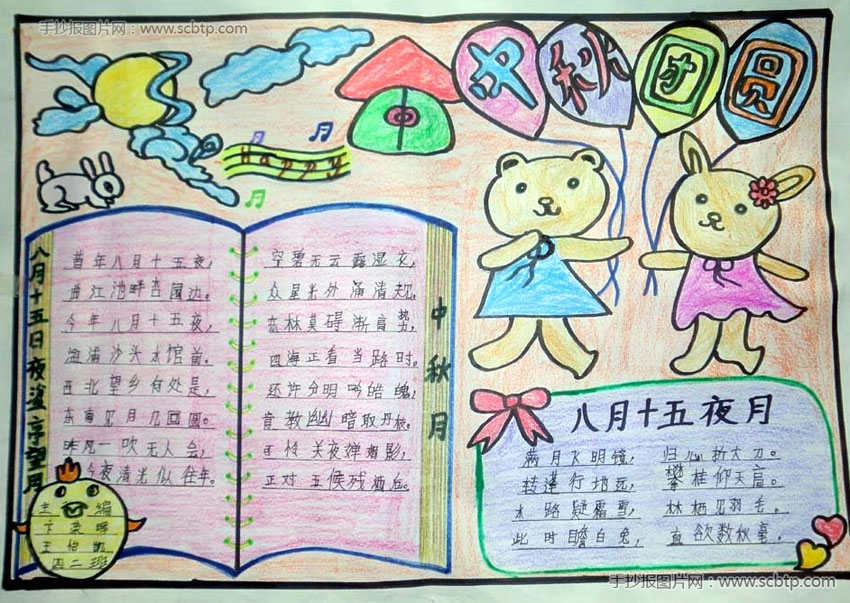 手抄报图片网：www.scbtp.com
中秋团圆
Happy
八月十五日夜湓亭望月
昔年八月十五夜，
曲江池畔杏园边。
今年八月十五夜，
湓浦沙头水馆前。
西北望乡何处是，
东南见月几回圆。
昨风一吹无人会，
今夜清光似往年。
中秋月
空碧无云露湿衣，
众星光外涌清规。
东林莫碍渐高势，
四海正看当路时。
还许分明吟皓魄，
肯教幽暗取丹枝。
可怜关夜婵娟影，
正对五候残酒卮。
主编
四二班
八月十五夜月
满月飞明镜，归心折大刀。
转蓬行地远，攀桂仰天高。
水路疑霜雪，林栖见羽毛。
此时瞻白兔，直欲数秋毫。
手抄报图片网：www.scbtp.com